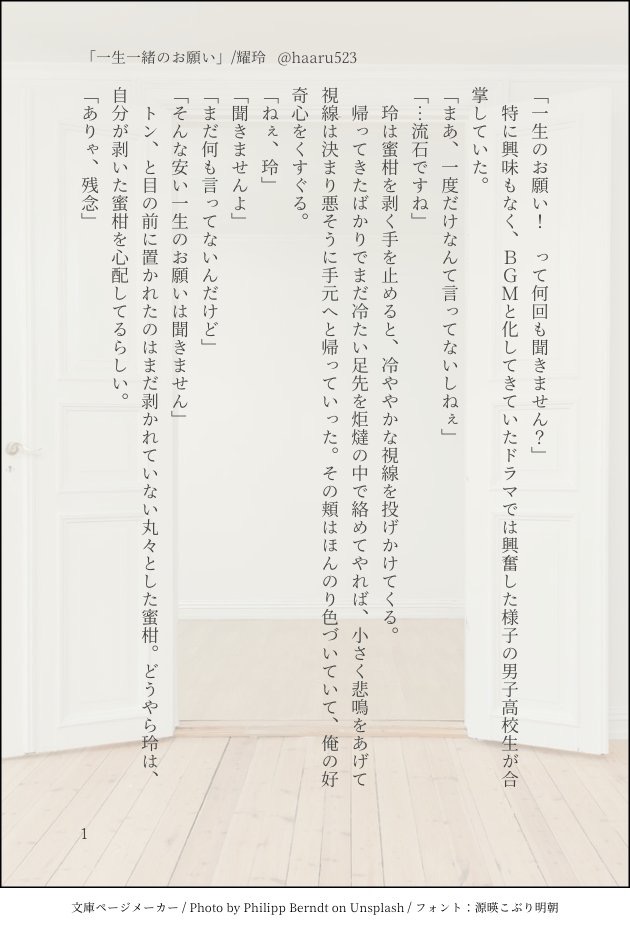 「一生一緒のお願い」/耀玲　@haaru523
「一生のお願い！　って何回も聞きません？」
特に興味もなく、ＢＧＭと化してきていたドラマでは興奮した様子の男子高校生が合
掌していた。
「まあ、一度だけなんて言ってないしねぇ」
「…流石ですね」
玲は蜜柑を剥く手を止めると、冷ややかな視線を投げかけてくる。
帰ってきたばかりでまだ冷たい足先を炬燵の中で絡めてやれば、小さく悲鳴をあげて
視線は決まり悪そうに手元へと帰っていった。その頬はほんのり色づいていて、俺の好
奇心をくすぐる。
「ねぇ、玲」
「聞きませんよ」
「まだ何も言ってないんだけど」
「そんな安い一生のお願いは聞きません」
トン、と目の前に置かれたのはまだ剥かれていない丸々とした蜜柑。どうやら玲は、
自分が剥いた蜜柑を心配してるらしい。
「ありゃ、残念」
1
文庫ページメーカー / Photo by Philipp Berndt on Unsplash / フォント：源暎こぶり明朝